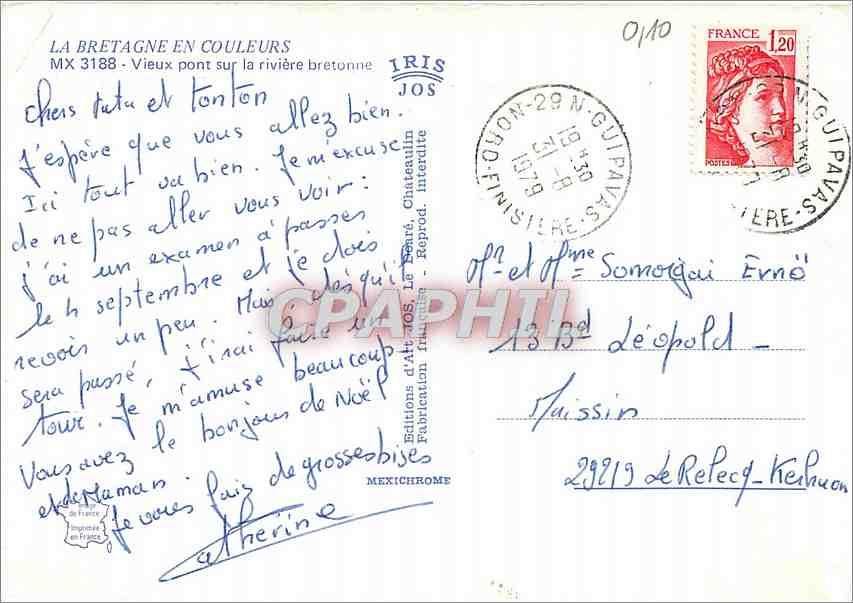 0,10
LA BRETAGNE EN COULEURS
MX 3188 - Vieux pont sur la rivière bretonne
IRIS
JOS
FRANCE 1,20
POSTES
29 N. GUIPAVAS
19 H 30
31 - 8
1979
FINISTERE
N. GUIPAVAS
H 30
- 8
Chers tata et tonton
J'espère que vous allez bien.
Ici tout va bien. Je m'excuse
de ne pas aller vous voir :
j'ai un examen à passer
le 4 septembre et je dois
revoir un peu. Mais dès qu'il
sera passé, j'irai faire un
tour. Je m'amuse beaucoup
Vous avez le bonjour de Noël
et de Maman.
Je vous fais de grosses bises
Catherine
Editions d'Art JOS, Le Doaré, Chateaulin
Fabrication française - Reprod. interdite
MEXICHROME
Image
de France
Imprimée
en France
Mr et Mme Somogai Ernö
13 Bd Léopold -
Maissin
29219 Le Relecq-Kerhuon
CPAPHTI